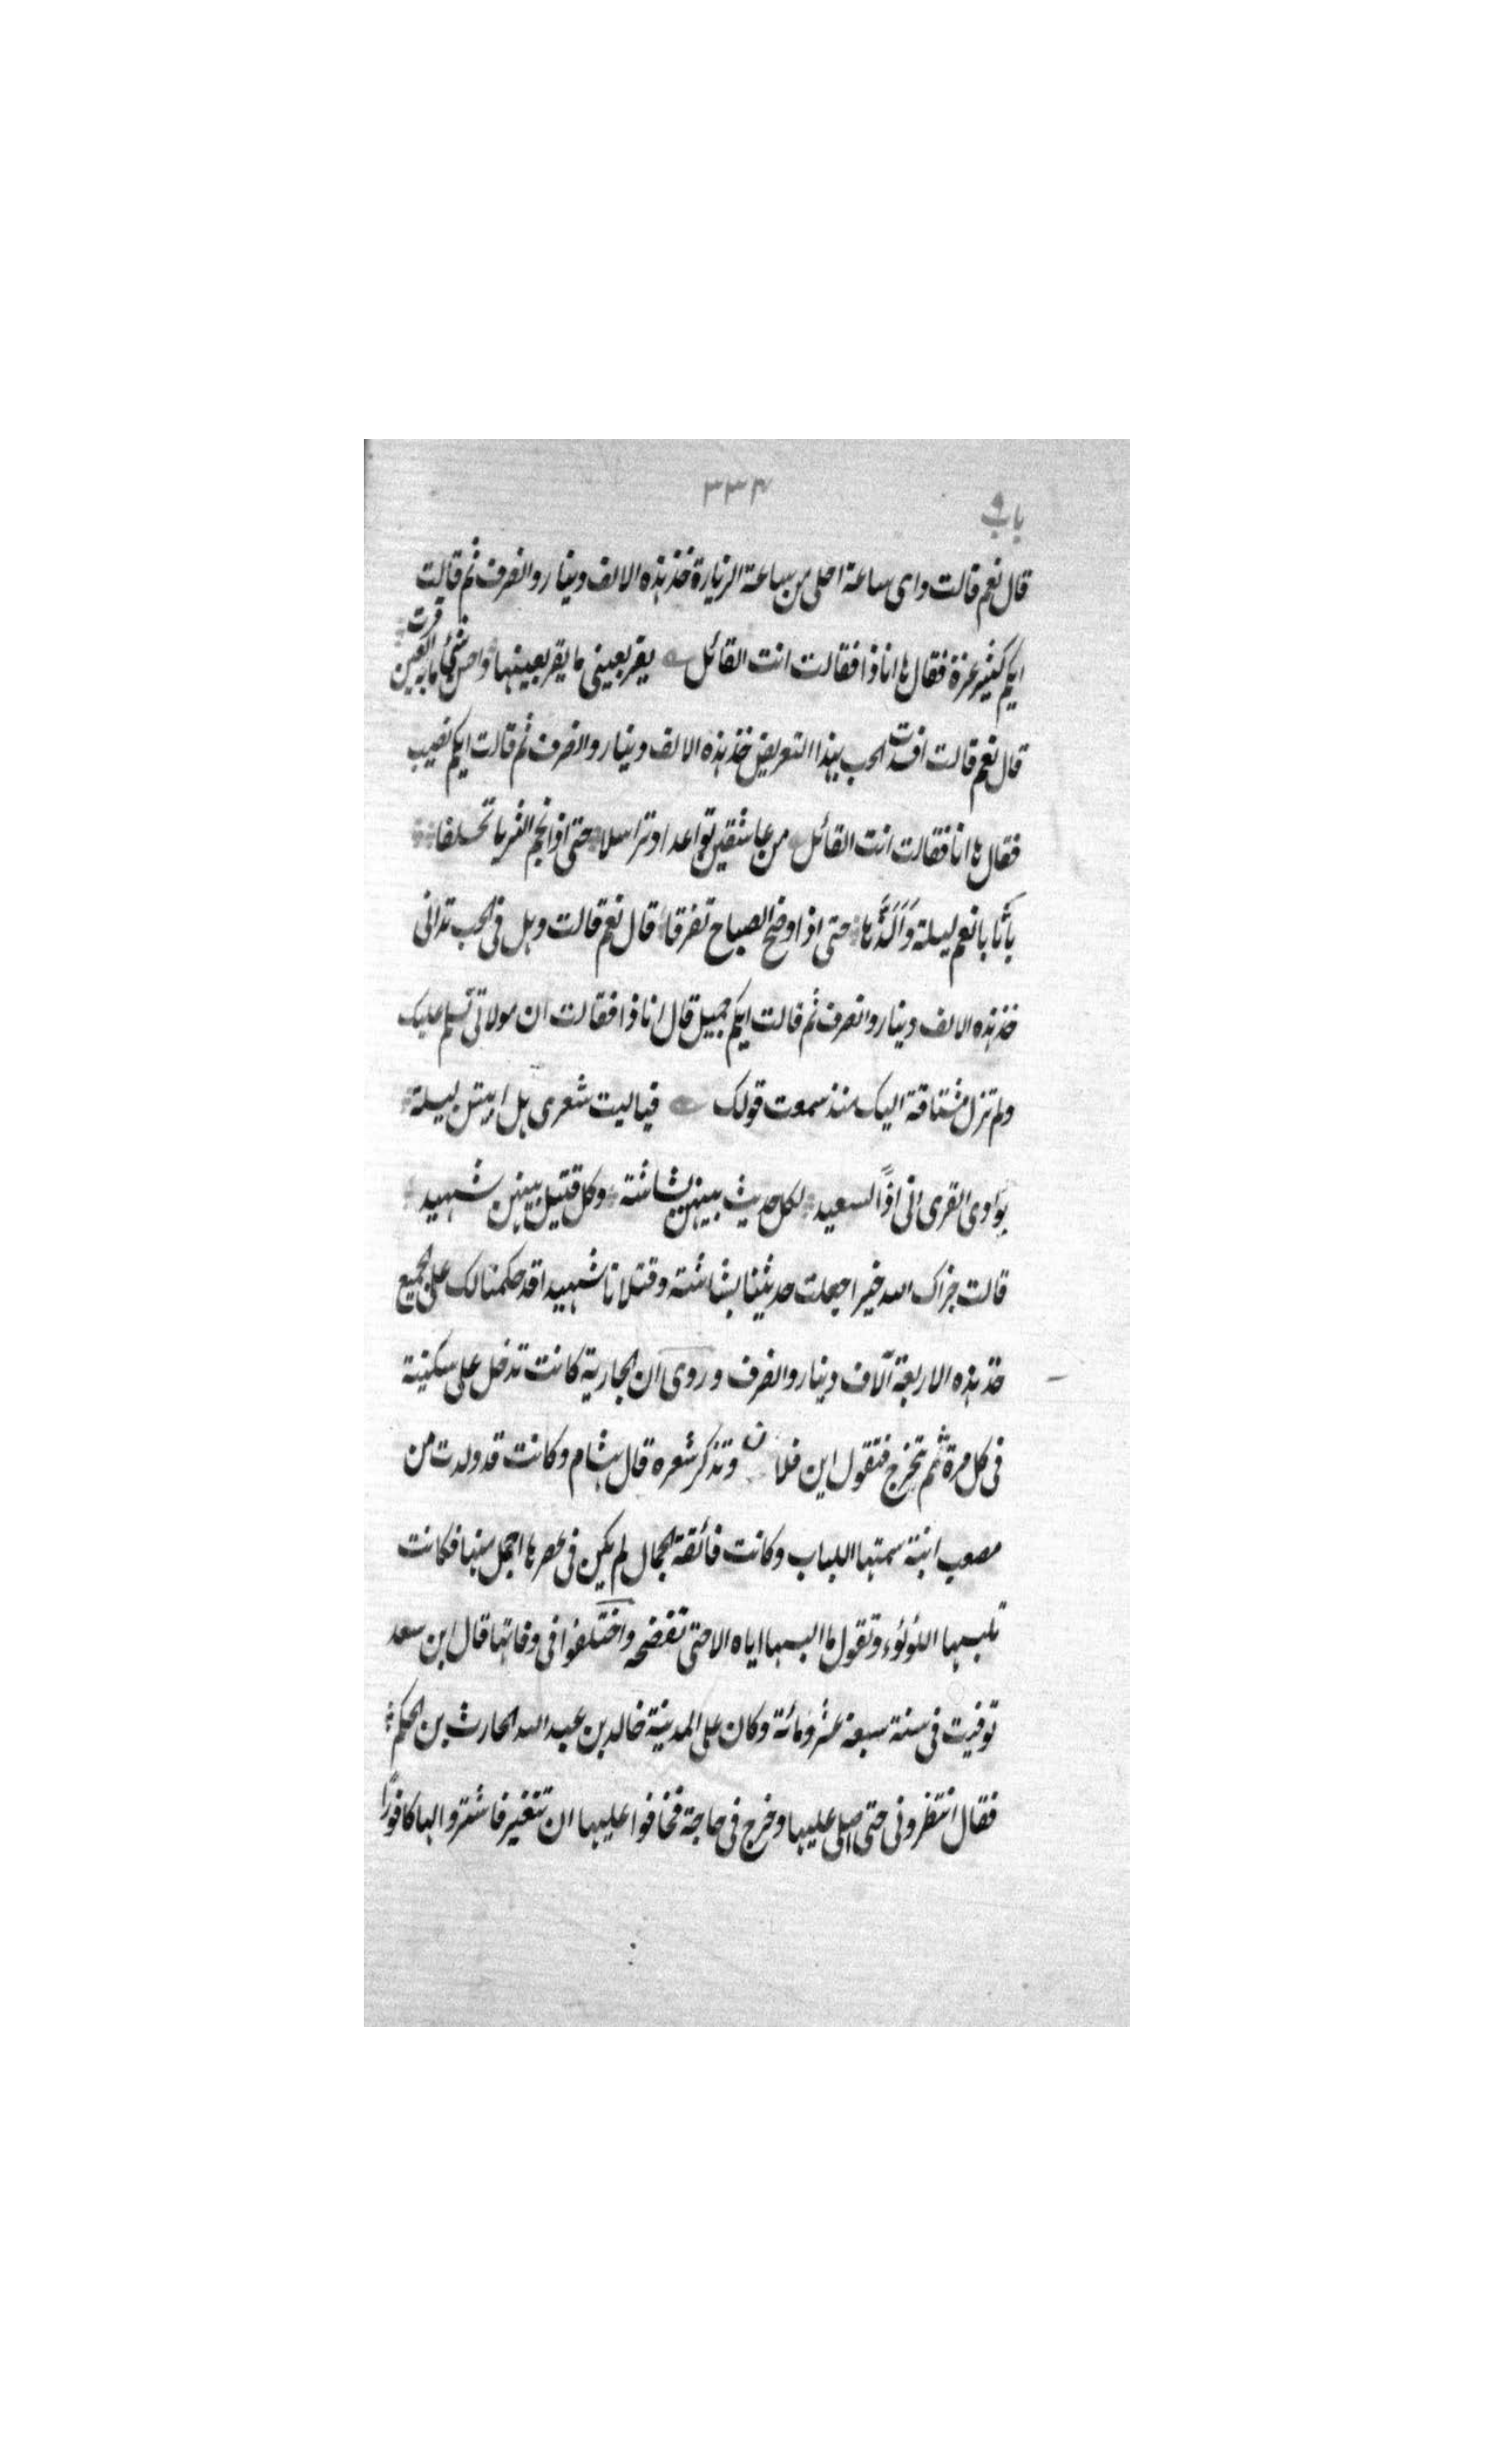 باب ٩
٣٣٤
قال نعم قالت وای ساعة احلی من ساعة الزیارة خذ هذه الالف دینار وانصرف ثم قالت
ایکم کثیر عزة فقال ها انا ذا فقالت انت القائل یقر بعینی ما یقر بعینها واحسن شئ ما به العین قرت
قال نعم قالت افسدت الحب بهذا التعریض خذ هذه الالف دینار وانصرف ثم قالت ایکم نصیب
فقال ها انا فقالت انت القائل من عاشقین تواعدا وتراسلا حتی اذا نجم الثریا تحلقا
باتا بانعم لیلة وَاَلَذِّها حتی اذا وضح الصباح تفرقا قال نعم قالت وهل فی الحب تدانی
خذ هذه الالف دینار وانصرف ثم قالت ایکم جمیل قال انا ذا فقالت ان مولاتی تسلم علیک
ولم تزل مشتاقة الیک منذ سمعت قولک فیالیت شعری هل ابیتن لیلة
بوادی القری انی اذًا لسعید لکل حدیث بینهن بشاشة وکل قتیل بینهن شهید
قالت جزاک الله خیرا جعلت حدیثنا بشاشة وقتلانا شهیدا قد حکمنا لک علی الجمیع
خذ هذه الاربعة آلاف دینار وانصرف وروی ان الجاریة کانت تدخل علی سکینة
فی کل مرة ثم تخرج فتقول این فلان وتذکر شعره قال هشام وکانت قد ولدت من
مصعب ابنة سمتها اللباب وکانت فائقة الجمال لم یکن فی عصرها اجمل منها فکانت
تلبسها اللؤلوء وتقول ما البسها ایاه الا حتی تفضحه واختلفوا فی وفاتها قال ابن سعد
توفیت فی سنة سبعة عشر ومائة وکان علی المدینة خالد بن عبد الله الحارث بن الحکم
فقال انتظرونی حتی اصلی علیها وخرج فی حاجة فخافوا علیها ان تتغیر فاشتروا لها کافورًا